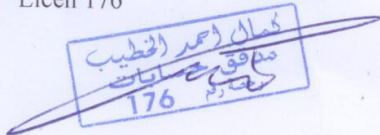 Licen 176
كمال احمد الخطيب
مدقق حسابات
176